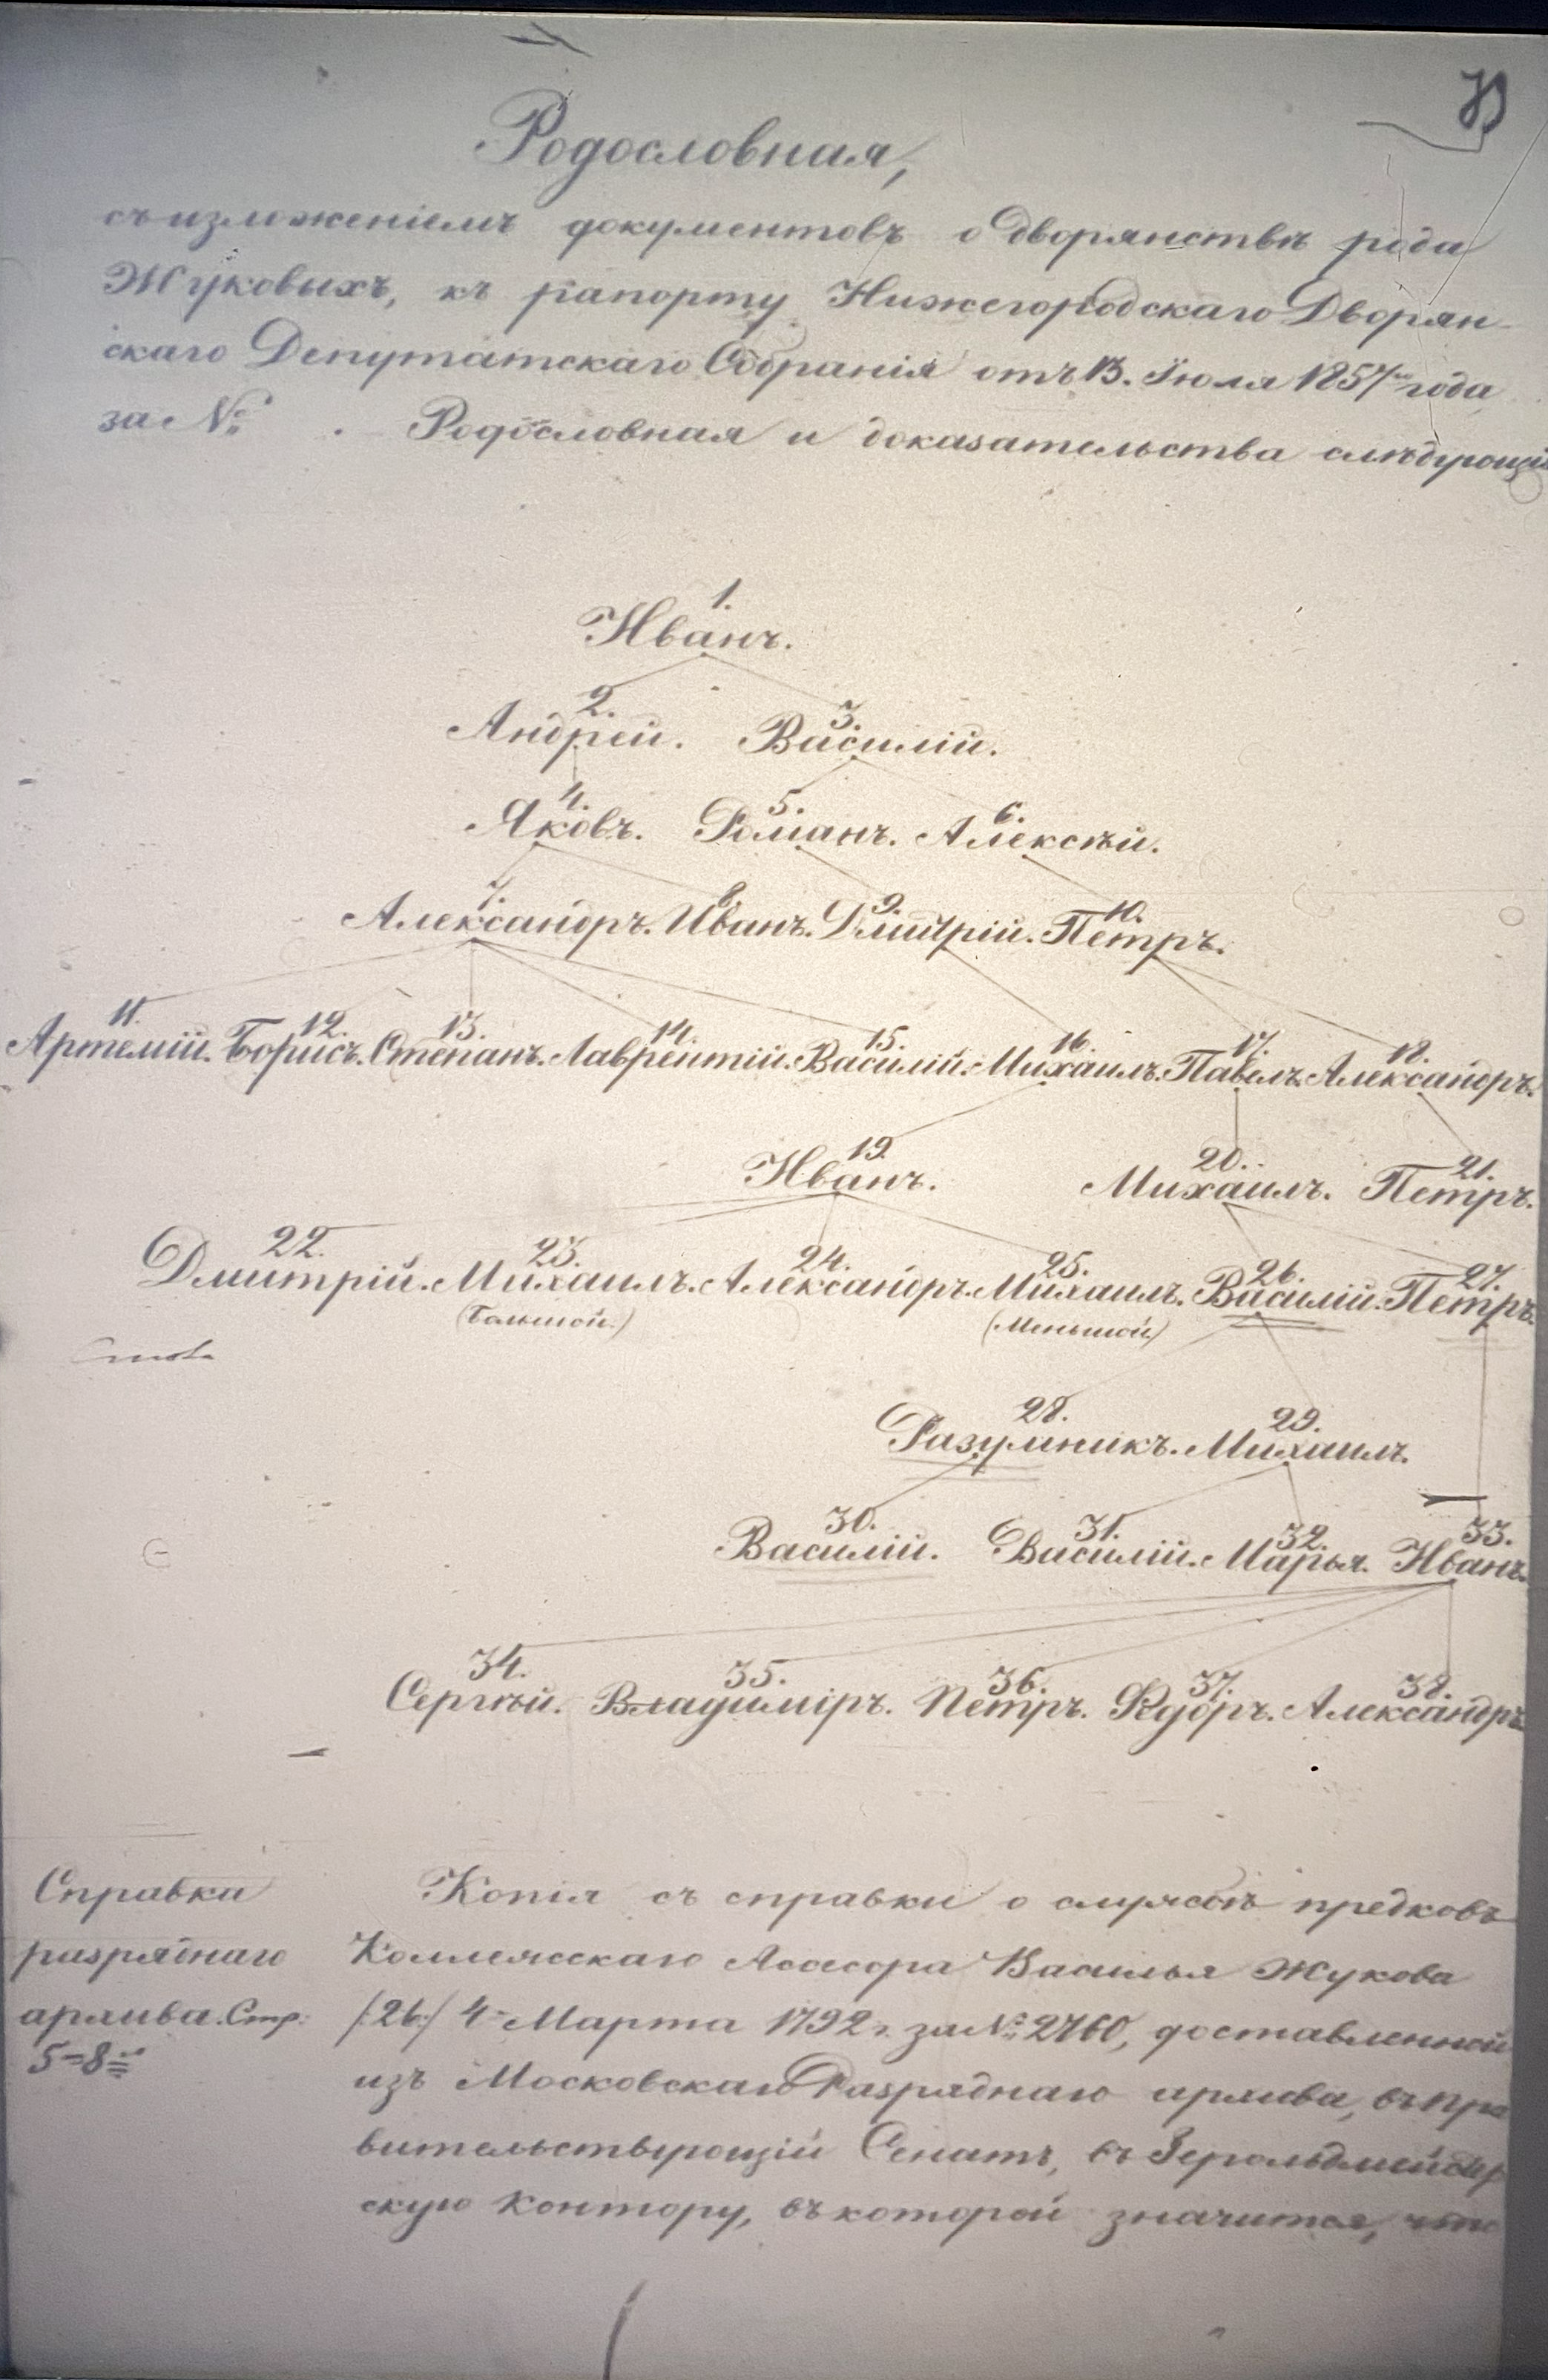 Родословная,
съ изложеніемъ документовъ о дворянствѣ рода
Жуковыхъ, къ рапорту Нижегородскаго Дворян-
скаго Депутатскаго Собранія отъ 13. Іюля 1857 года
за №. Родословная и доказательства слѣдующі
1.
Иванъ.
2. 3.
Андрей. Василій.
4. 5. 6.
Яковъ. Романъ. Алексѣй.
7. 8. 9. 10.
Александръ. Иванъ. Дмитрій. Петръ.
11. 12. 13. 14. 15. 16. 17. 18.
Артемій. Борисъ. Степанъ. Лаврентій. Василій. Михаилъ. Павелъ. Александръ.
19. 20. 21.
Иванъ. Михаилъ. Петръ.
22. 23. 24. 25. 26. 27.
Дмитрій. Михаилъ. Александръ. Михаилъ. Василій. Петръ.
(Большой.) (Меньшой)
28. 29.
Разумникъ. Михаилъ.
30. 31. 32. 33.
Василій. Василій. Марья. Иванъ.
34. 35. 36. 37. 38.
Сергѣй. Владиміръ. Петръ. Ѳедоръ. Александръ
Справки
разряднаго
архива. Стр:
5=8=
Копія съ справки о службѣ предковъ
Коллежскаго Асессора Василья Жукова
/:26:/ 4 Марта 1792 г. за № 2760, доставленной
изъ Московскаго Разряднаго архива, въ Пра
вительствующій Сенатъ, въ Герольдмейстер
скую Контору, въ которой значится, что